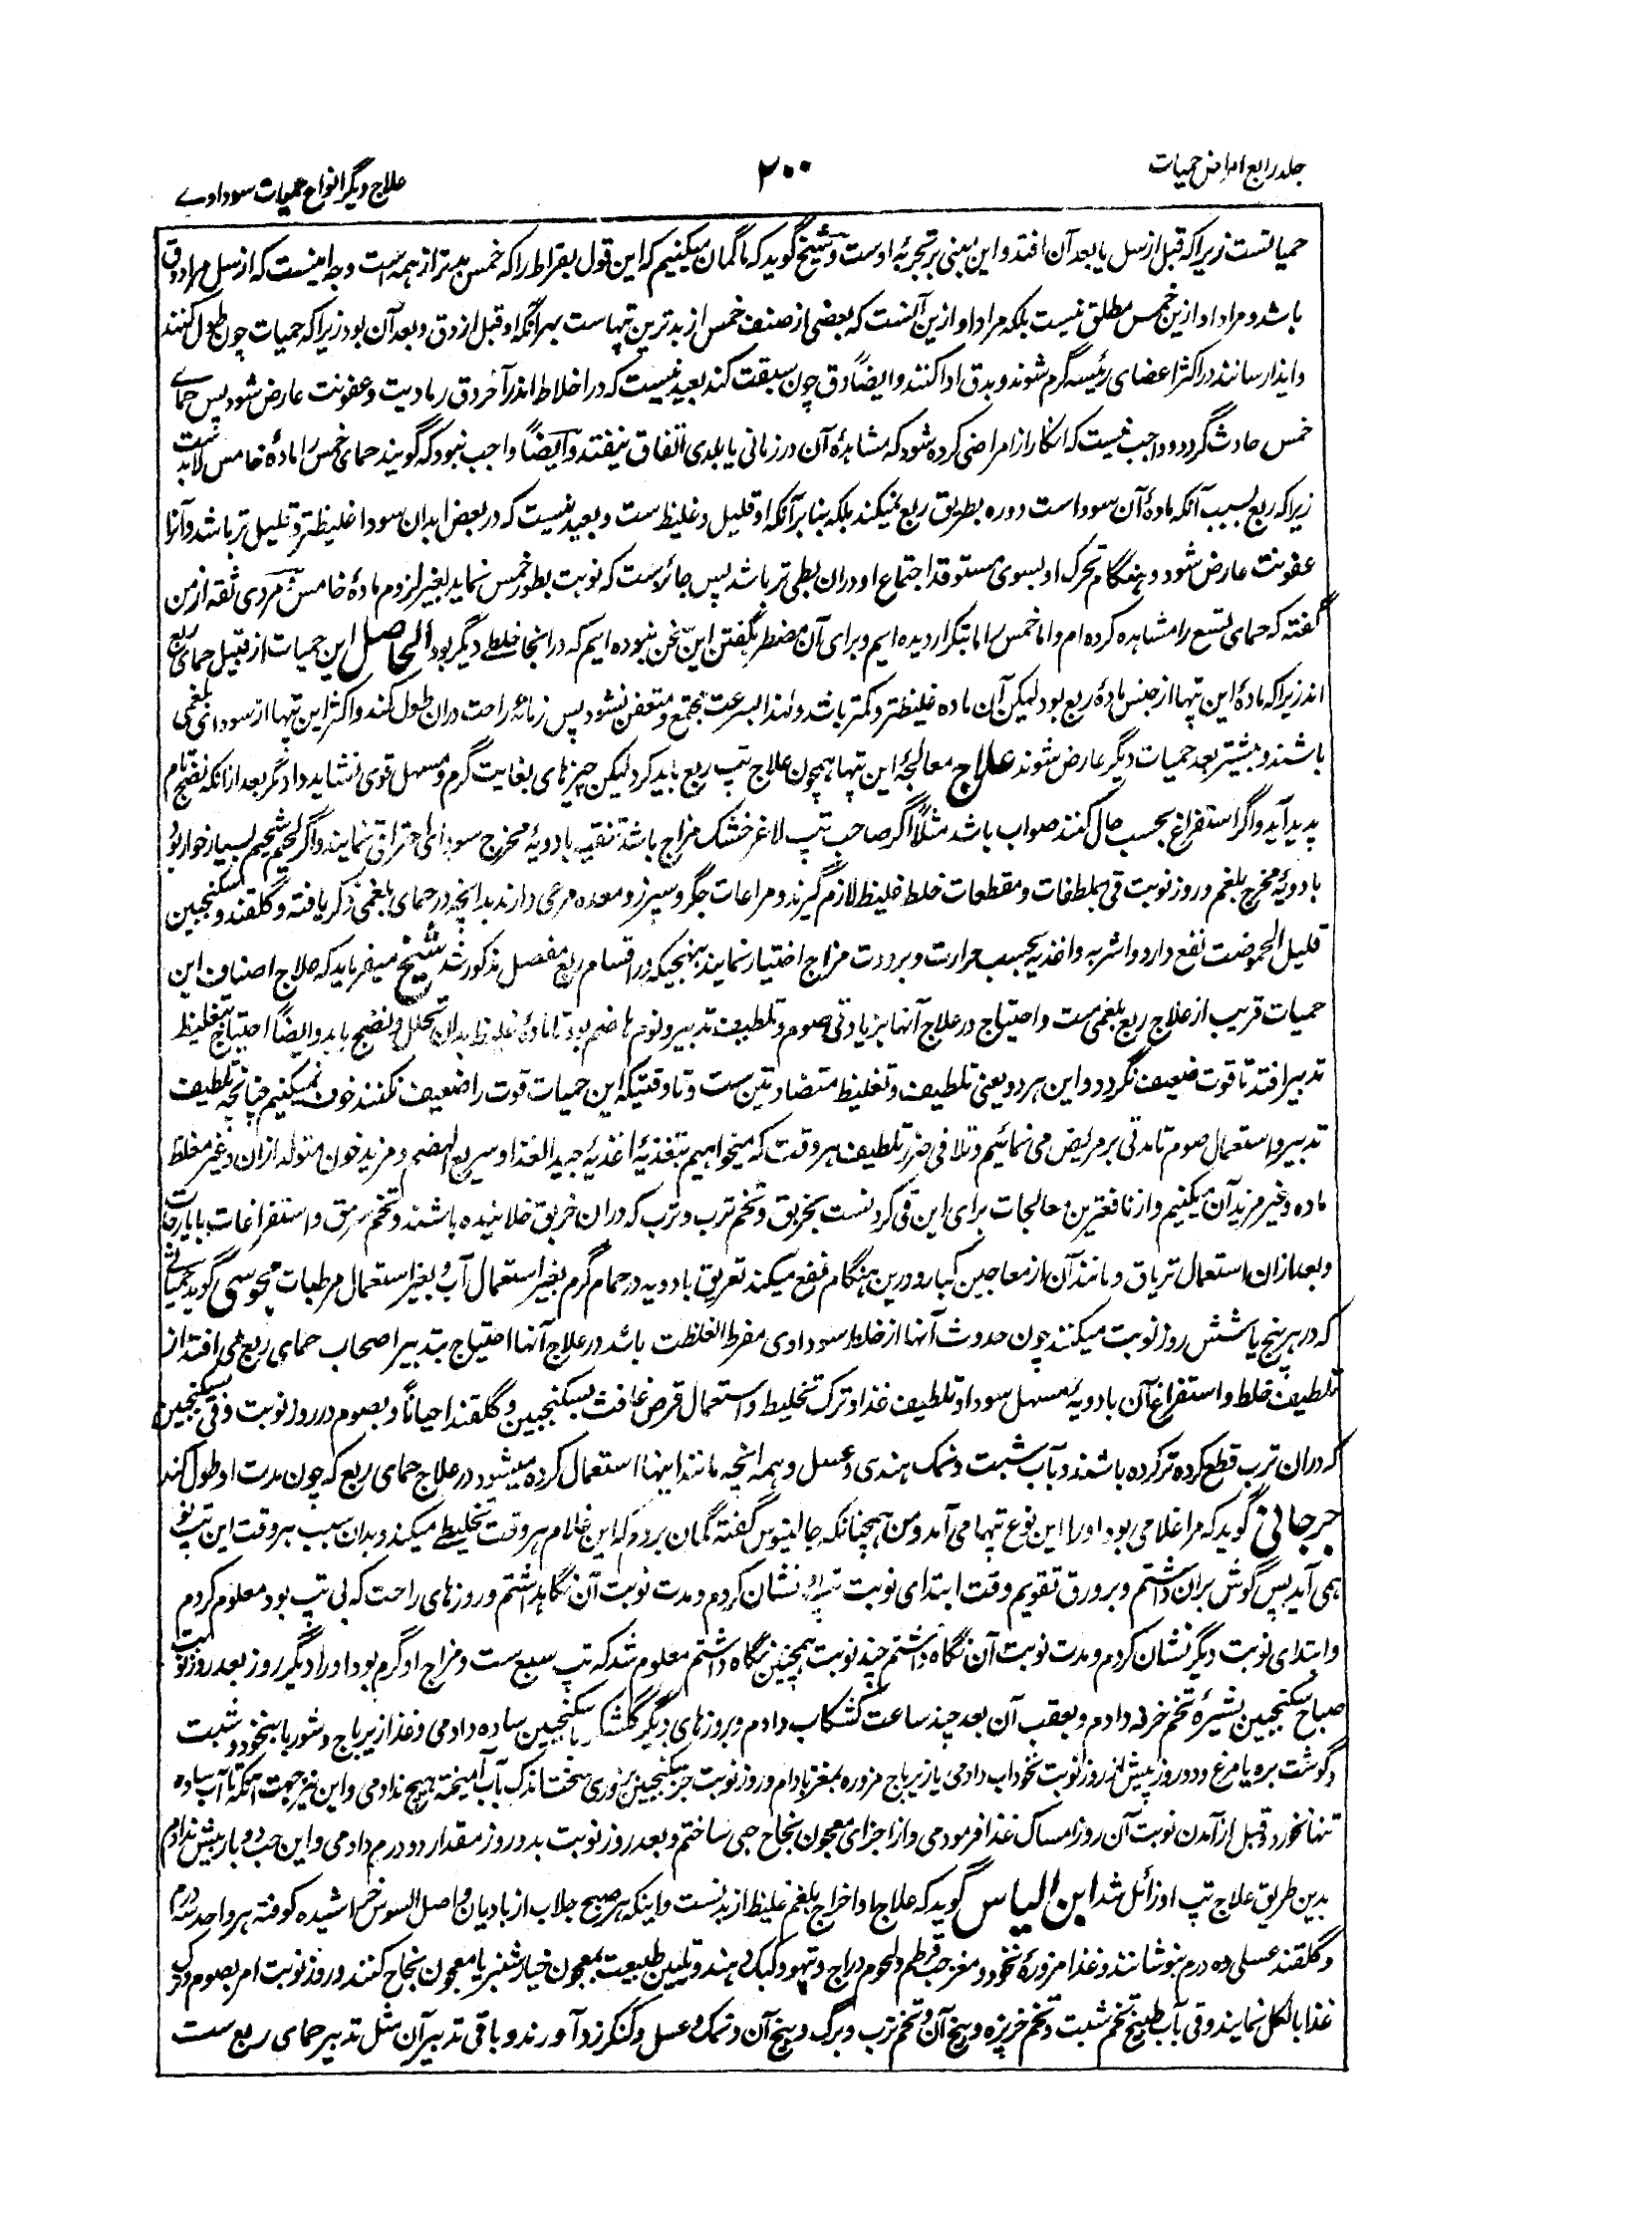 جلد رابع امراض حمیات
۲۰۰
علاج دیگر انواع حمیات سوداوے
حمیاتست زیرا که قبل از سل یا بعد آن افتد و این مبنی بر تجربهٔ اوست و شیخ گوید که ما گمان میکنیم که این قول بقراط را که خمس بدتر از همه است وجه اینست که از سل مراد دق
باشد و مراد او ازین خمس مطلق نیست بلکه مراد او ازین آنست که بعضی از صنف خمس از بدترین تپهاست بهر آنکه او قبل از دق و بعد آن بود زیرا که حمیات چون طول کنند
و ایذا رسانند در اکثر اعضای رئیسه گرم شوند و بدق ادا کنند و ایضاً دق چون سبقت کند بعید نیست که در اخلاط اندر آخر دق رمادیت و عفونت عارض شود پس حمای
خمس حادث گردد و واجب نیست که انکار از امراضی کرده شود که مشاهدهٔ آن در زمانی یا بلدی اتفاق نیفتد و ایضاً واجب نبود که گویند حمای خمس را مادهٔ خامس لابد ست
زیرا که ربع بسبب آنکه مادهٔ آن سودا است دوره بطریق ربع نمیکند بلکه بنا بر آنکه او قلیل و غلیظ ست و بعید نیست که در بعض ابدان سودا غلیظتر و قلیل تر باشد و آنرا
عفونت عارض شود و هنگام تحرک او بسوی مستوقد اجتماع او دران بطی تر باشد پس جائز ست که نوبت بطور خمس نماید بغیر لزوم مادهٔ خامس و مردی ثقه از من
گفته که حمای تسع را مشاهده کرده ام و اما خمس را ما بتکرار دیده ایم و برای آن مضطر بگفتن این سخن نبوده ایم که در انجا خلطے دیگر بود الحاصل این حمیات از قبیل حمای ربع
اند زیرا که مادهٔ این تپها از جنس مادهٔ ربع بود لیکن آن ماده غلیظتر و کمتر باشد و لهذا بسرعت مجتمع و متعفن نشود پس زمانهٔ راحت دران طول کند و اکثر این تپها از سودای بلغمی
باشند و بیشتر بعد حمیات دیگر عارض شوند علاج معالجهٔ این تپها همچون علاج تپ ربع باید کرد لیکن چیزهای بغایت گرم و مسهل قوی نشاید داد مگر بعد ازانکه نضج تام
پدید آید و اگر استفراغ بحسب حال کنند صواب باشد مثلاً اگر صاحب تپ لاغر خشک مزاج باشد تنقیه بادویهٔ مخرج سودای احتراقی نمایند و اگر لحیم شحیم بسیار خوار بود
بادویهٔ مخرج بلغم و روز نوبت قی بملطفات و مقطعات خلط غلیظ لازم گیرند و مراعات جگر و سپرز و معده مرعی دارند بدانچه در حمای بلغمی ذکر یافته و گلقند و سکنجبین
قلیل الحموضت نفع دارد و اشربه و اغذیه بحسب حرارت و برودت مزاج اختیار نمایند بنهجیکه در اقسام ربع مفصل مذکور شد شیخ میفرماید که علاج اصناف این
حمیات قریب از علاج ربع بلغمی ست و احتیاج در علاج آنها بزیادتی صوم و تلطیف تدبیر و نوم هاضم بود تا مادهٔ غلیظ بدان تحلل و نضج یابد و ایضاً احتیاج بتغلیظ
تدبیر افتد تا قوت ضعیف نگردد و این هر دو یعنی تلطیف و تغلیظ متضادتین ست و تا وقتیکه این حمیات قوت را ضعیف نکنند خوف نمیکنیم چنانچه تلطیف
تدبیر و استعمال صوم تا مدتی بر مریض می نمائیم و تلافی ضرر تلطیف هر وقت که میخواهیم بتغذیهٔ اغذیهٔ جید الغذا و سریع الهضم و مزید خون متولد ازان و غیر مغلظ
ماده و غیر مزید آن میکنیم و از نافعترین معالجات برای این قی کردنست بخربق و تخم ترب و ترب که دران خربق خلانیده باشند و تخم سرمق و استفراغات بایارجات
و بعد ازان استعمال تریاق و مانند آن از معاجین کبار و درین هنگام نفع میکند تعریق بادویه در حمام گرم بغیر استعمال آب و بغیر استعمال مرطبات مجوسی گوید حمیاتی
که در هر پنج یا شش روز نوبت میکنند چون حدوث آنها از خلط سوداوی مفرط الغلظت باشد در علاج آنها احتیاج بتدبیر اصحاب حمای ربع می افتد از
تلطیف خلط و استفراغ آن بادویهٔ مسهل سودا و تلطیف غذا و ترک تخلیط و استعمال قرص غافث بسکنجبین و گلقند احیاناً و بصوم در روز نوبت و قی بسکنجبین
که دران ترب قطع کرده تر کرده باشند و بآب شبت و نمک هندی و عسل و همه انچه مانند اینها استعمال کرده میشود در علاج حمای ربع که چون مدت او طول کند
جرجانی گوید که مرا غلامی بود او را این نوع تپها می آمد و من همچنانکه جالینوس گفته گمان بردم که این غلام هر وقت تخلیطے میکند و بدان سبب هر وقت این تپ نو
همی آید پس گوش بران داشتم و بر ورق تقویم وقت ابتدای نوبت تپ نشان کردم و مدت نوبت آن نگاهداشتم و روزهای راحت که بی تپ بود معلوم کردم
و ابتدای نوبت دیگر نشان کردم و مدت نوبت آن نگاه داشتم چند نوبت همچنین نگاه داشتم معلوم شد که تپ سبع ست و مزاج او گرم بود او را دیگر روز بعد روز نوبت
صباح سکنجبین بشیرهٔ تخم خرفه دادم و بعقب آن بعد چند ساعت کشکاب دادم و بروزهای دیگر گلشکر با سکنجبین ساده دادمی و غذا زیرباج و شوربا بنخود و شبت
و گوشت بره یا مرغ و دو روز پیش از روز نوبت نخوداب دادمی یا زیرباج مزوره بمغز بادام و روز نوبت جز سکنجبین بزوری سخت اندک بآب آمیخته هیچ ندادمی و این نیز جهت آنکه تا آب ساده
تنها نخورد و قبل از آمدن نوبت آن روز امساک غذا فرمودمی و از اجزای معجون نجاح حبی ساختم و بعد روز نوبت بدو روز مقدار دو درم دادمی و این حب دو بار بیش ندادم
بدین طریق علاج تپ او زائل شد ابن الیاس گوید که علاج او اخراج بلغم غلیظ از بدنست و اینکه هر صبح جلاب از بادیان و اصل السوس خراشیده کوفته هر واحد سه درم
و گلقند عسلی ده درم بنوشانند و غذا مزورهٔ نخود و مغز حب قرطم و لحوم دراج و تیهو و کبک دهند و تلیین طبیعت بمعجون خیارشنبر یا معجون نجاح کنند و روز نوبت امر بصوم و ترک
غذا بالکل نمایند و قی بآب طبیخ تخم شبت و تخم خرپزه و بیخ آن و تخم ترب و برگ و بیخ آن و نمک و عسل و کنکرزد آورند و باقی تدبیر آن مثل تدبیر حمای ربع ست